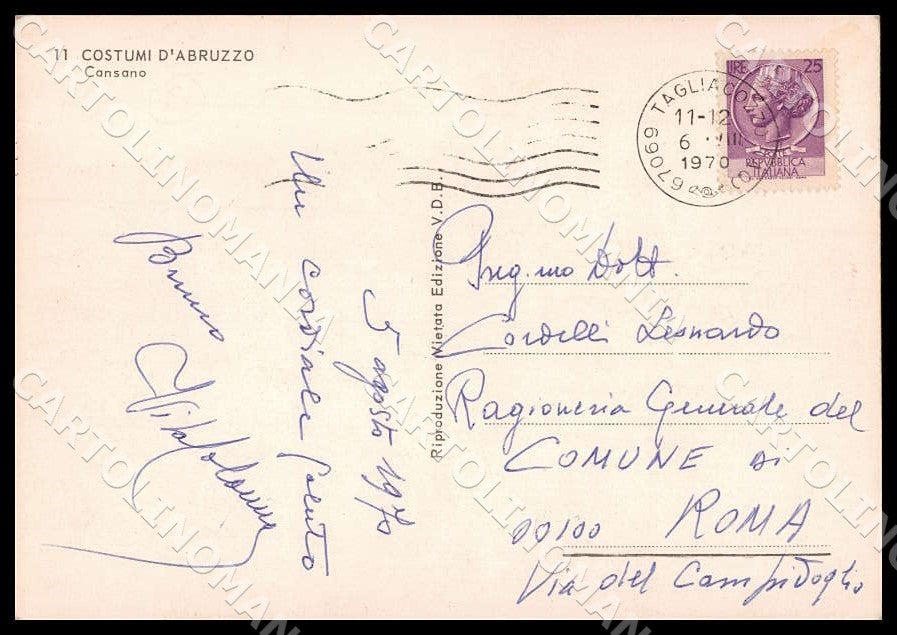 11 COSTUMI D'ABRUZZO
Cansano
LIRE 25
REPVBBLICA
ITALIANA
67069 TAGLIACOZZO
11-12
6 VIII
1970
Un cordiale saluto
5 agosto 1970
Bruno
Riproduzione Vietata Edizione V.D.B.
Preg.mo Dott.
Cordelli Leonardo
Ragioneria Generale del
COMUNE di
00100 ROMA
Via del Campidoglio
CARTOLINOMANIA